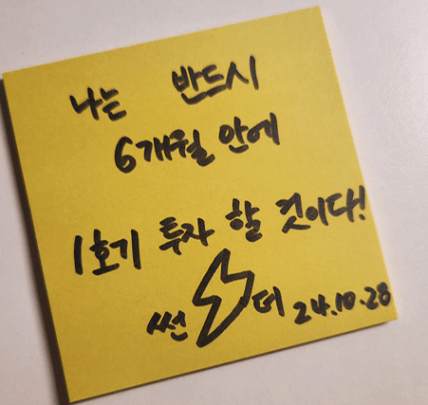 나는 반드시
6개월 안에
1호기 투자 할 것이다!
썬⚡더 24.10.28